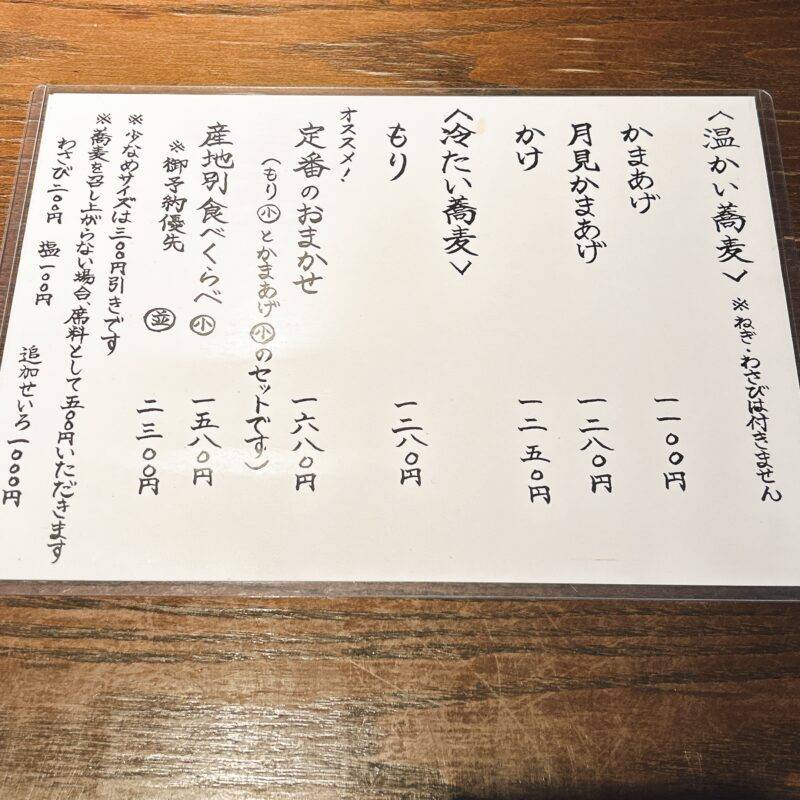 〈温かい蕎麦〉
※ねぎ・わさびは付きません
かまあげ 一一〇〇円
月見かまあげ 一二八〇円
かけ 一二五〇円
〈冷たい蕎麦〉
もり 一二八〇円
オススメ!
定番のおまかせ 一六八〇円
(もり小とかまあげ小のセットです)
産地別食べくらべ 小 一五八〇円
※御予約優先 並 二三〇〇円
※少なめサイズは三〇〇円引きです
※蕎麦を召し上がらない場合、席料として五〇〇円いただきます
わさび二〇〇円 塩一〇〇円 追加せいろ一〇〇〇円